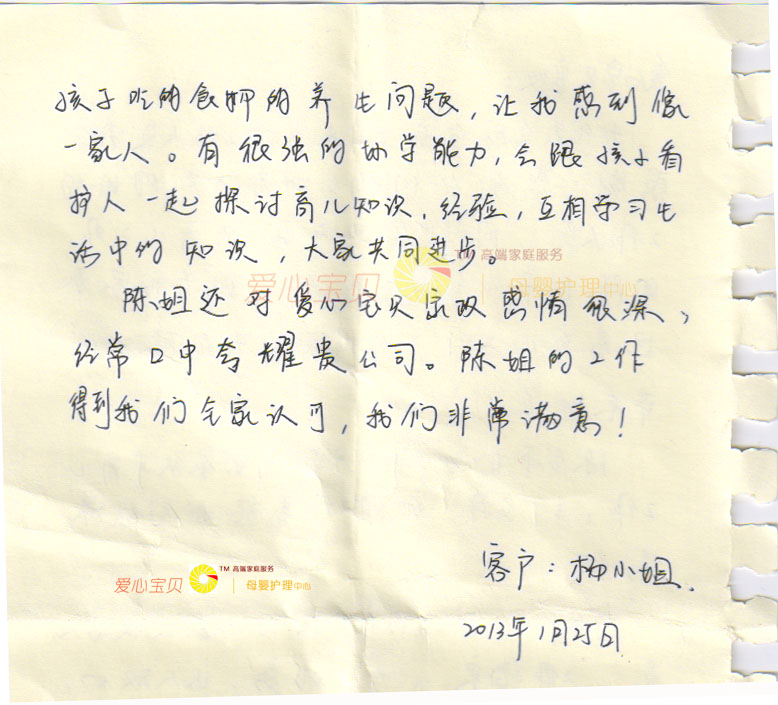 孩子吃的食物的养生问题，让我感到像
一家人。有很强的协学能力，会跟孩子看
护人一起探讨育儿知识、经验，互相学习生
活中的知识，大家共同进步。
爱心宝贝 TM 高端家庭服务 母婴护理中心
陈姐还对爱心宝贝家政感情很深，
经常口中夸耀贵公司。陈姐的工作
得到我们全家认可，我们非常满意！
爱心宝贝 TM 高端家庭服务 母婴护理中心
客户：杨小姐.
2013年1月25日